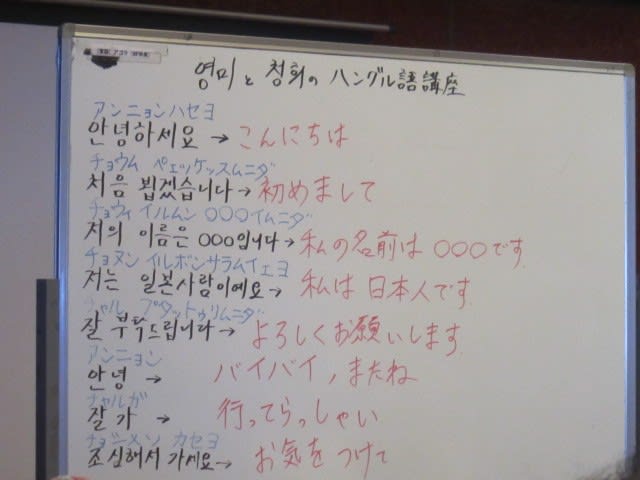 영미と청희のハングル語講座
アンニョンハセヨ
안녕하세요 → こんにちは
チョウム ペェッケッスムニダ
처음 뵙겠습니다 → 初めまして
チョウィ イルムン ○○○イムニダ
저의 이름은 ○○○입니다 → 私の名前は ○○○です.
チョヌン イルボンサラムイェヨ
저는 일본사람이예요 → 私は 日本人です.
チャル プタットゥリムニダ
잘 부탁드립니다 → よろしくお願いします
アンニョン
안녕 → バイバイ,またね
チャルガ
잘가 → 行ってらっしゃい
カセヨ
조심해서 가세요 → お気をつけて